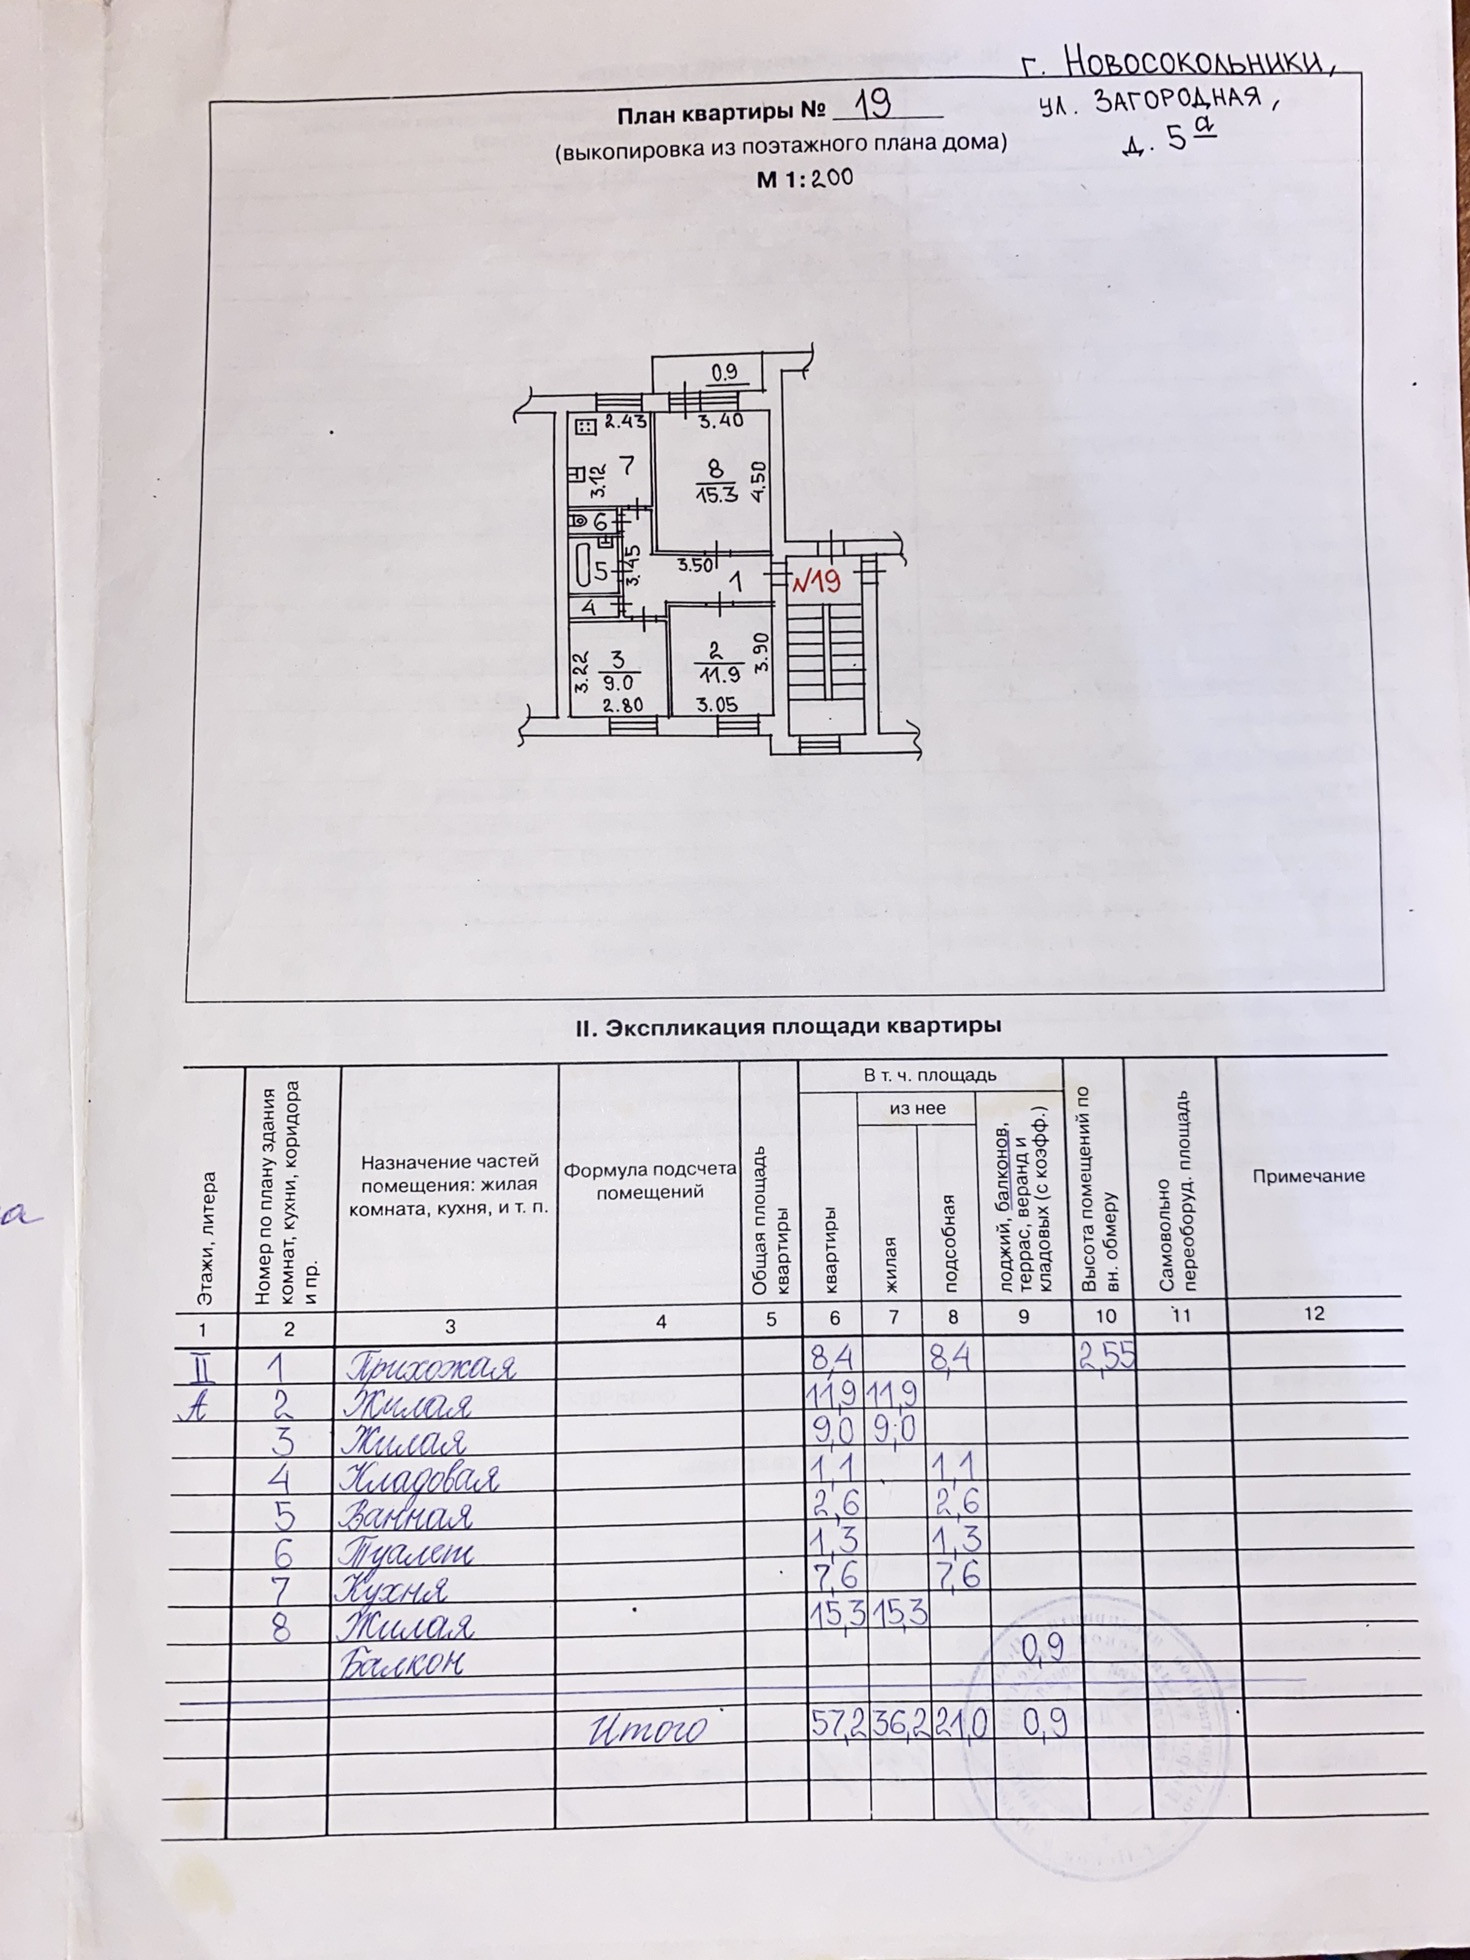 г. Новосокольники,
План квартиры № 19
ул. Загородная,
(выкопировка из поэтажного плана дома)
д. 5а
М 1:200
0.9
2.43
3.40
7
3.12
8
15.3
4.50
6
5
3.45
3.50
1
№19
4
3.22
3
9.0
2.80
2
11.9
3.05
3.90
II. Экспликация площади квартиры
Этажи, литера
Номер по плану здания комнат, кухни, коридора и пр.
Назначение частей помещения: жилая комната, кухня, и т. п.
Формула подсчета помещений
Общая площадь квартиры
В т. ч. площадь
квартиры
из нее
жилая
подсобная
лоджий, балконов, террас, веранд и кладовых (с коэфф.)
Высота помещений по вн. обмеру
Самовольно переоборуд. площадь
Примечание
1 2 3 4 5 6 7 8 9 10 11 12
II 1 Прихожая 8,4 8,4 2,55
А 2 Жилая 11,9 11,9
3 Жилая 9,0 9,0
4 Кладовая 1,1 1,1
5 Ванная 2,6 2,6
6 Туалет 1,3 1,3
7 Кухня 7,6 7,6
8 Жилая 15,3 15,3
Балкон 0,9
Итого 57,2 36,2 21,0 0,9